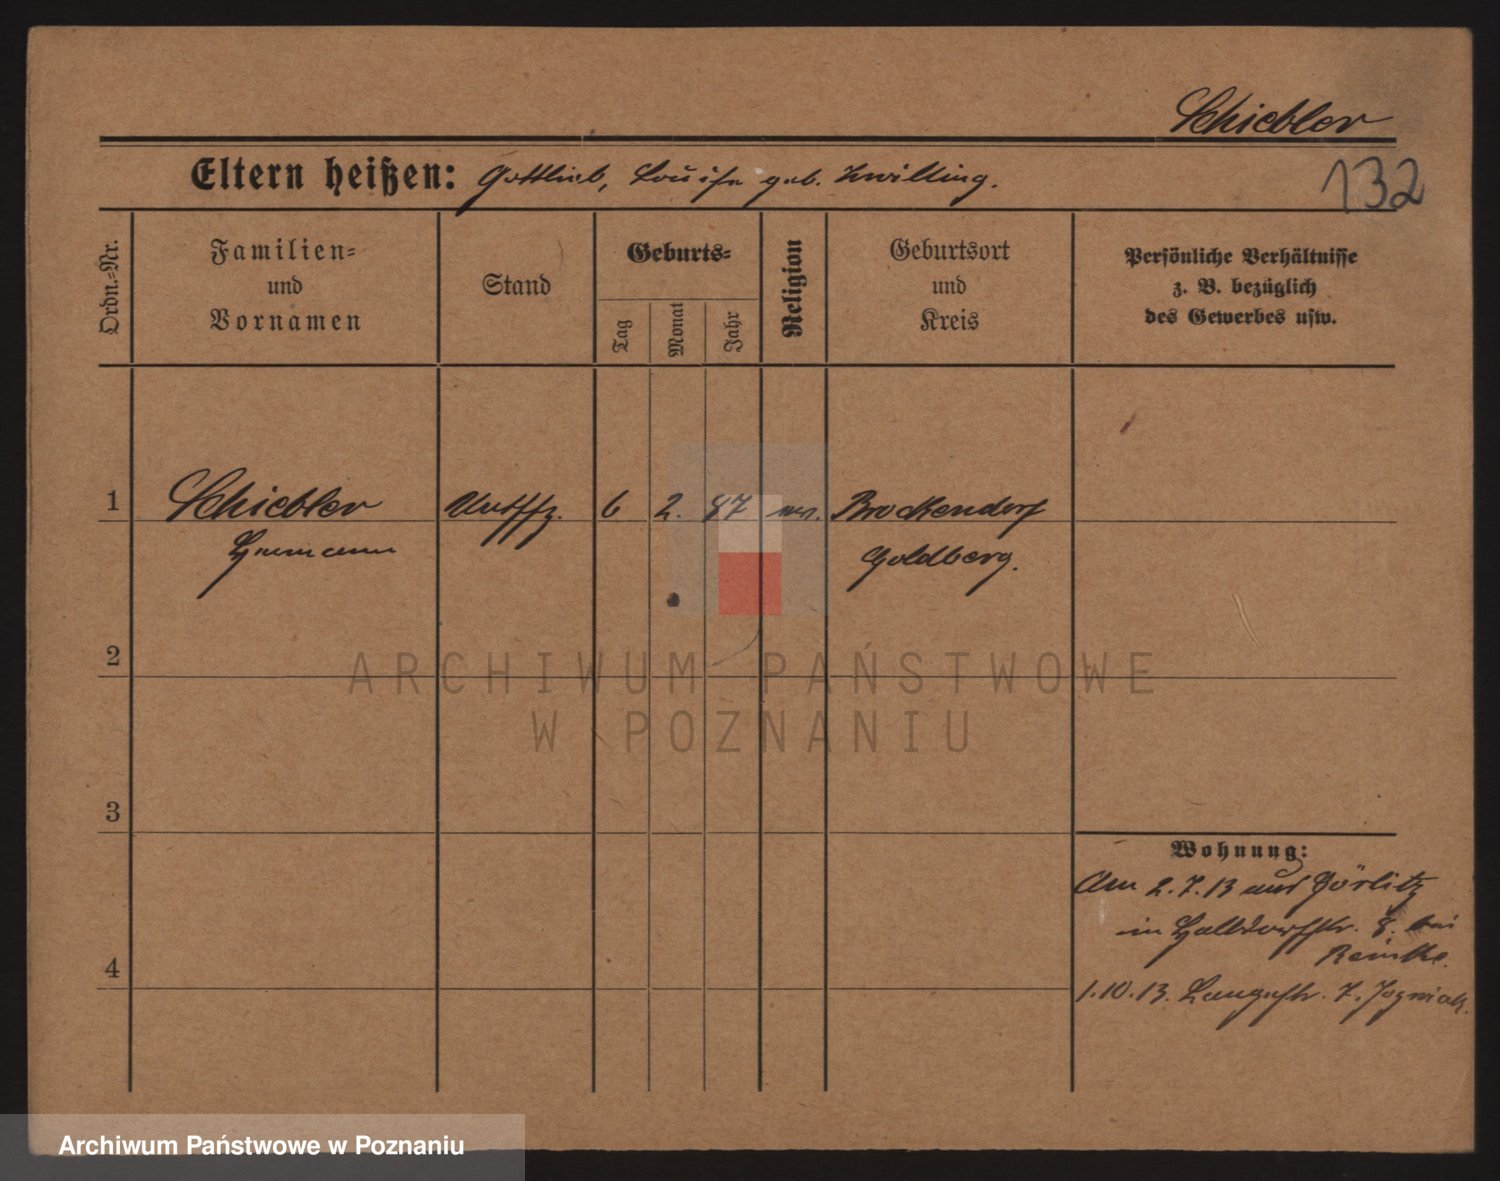 Schiebler
132
Eltern heißen: Gottlieb, Louise geb. Zwilling.
Ordn.-Nr.
Familien- und Vornamen
Stand
Geburts-
Tag
Monat
Jahr
Religion
Geburtsort und Kreis
Persönliche Verhältnisse
z. B. bezüglich
des Gewerbes usw.
1 Schiebler 6 2. 87 ev. Brockendorf
Hermann Goldberg.
2
3
4
Wohnung:
Am 2.7.13 aus Görlitz
in 8. bei
1.10.13. Langestr. 7. Jozwiak.
ARCHIWUM PAŃSTWOWE
W POZNANIU
Archiwum Państwowe w Poznaniu